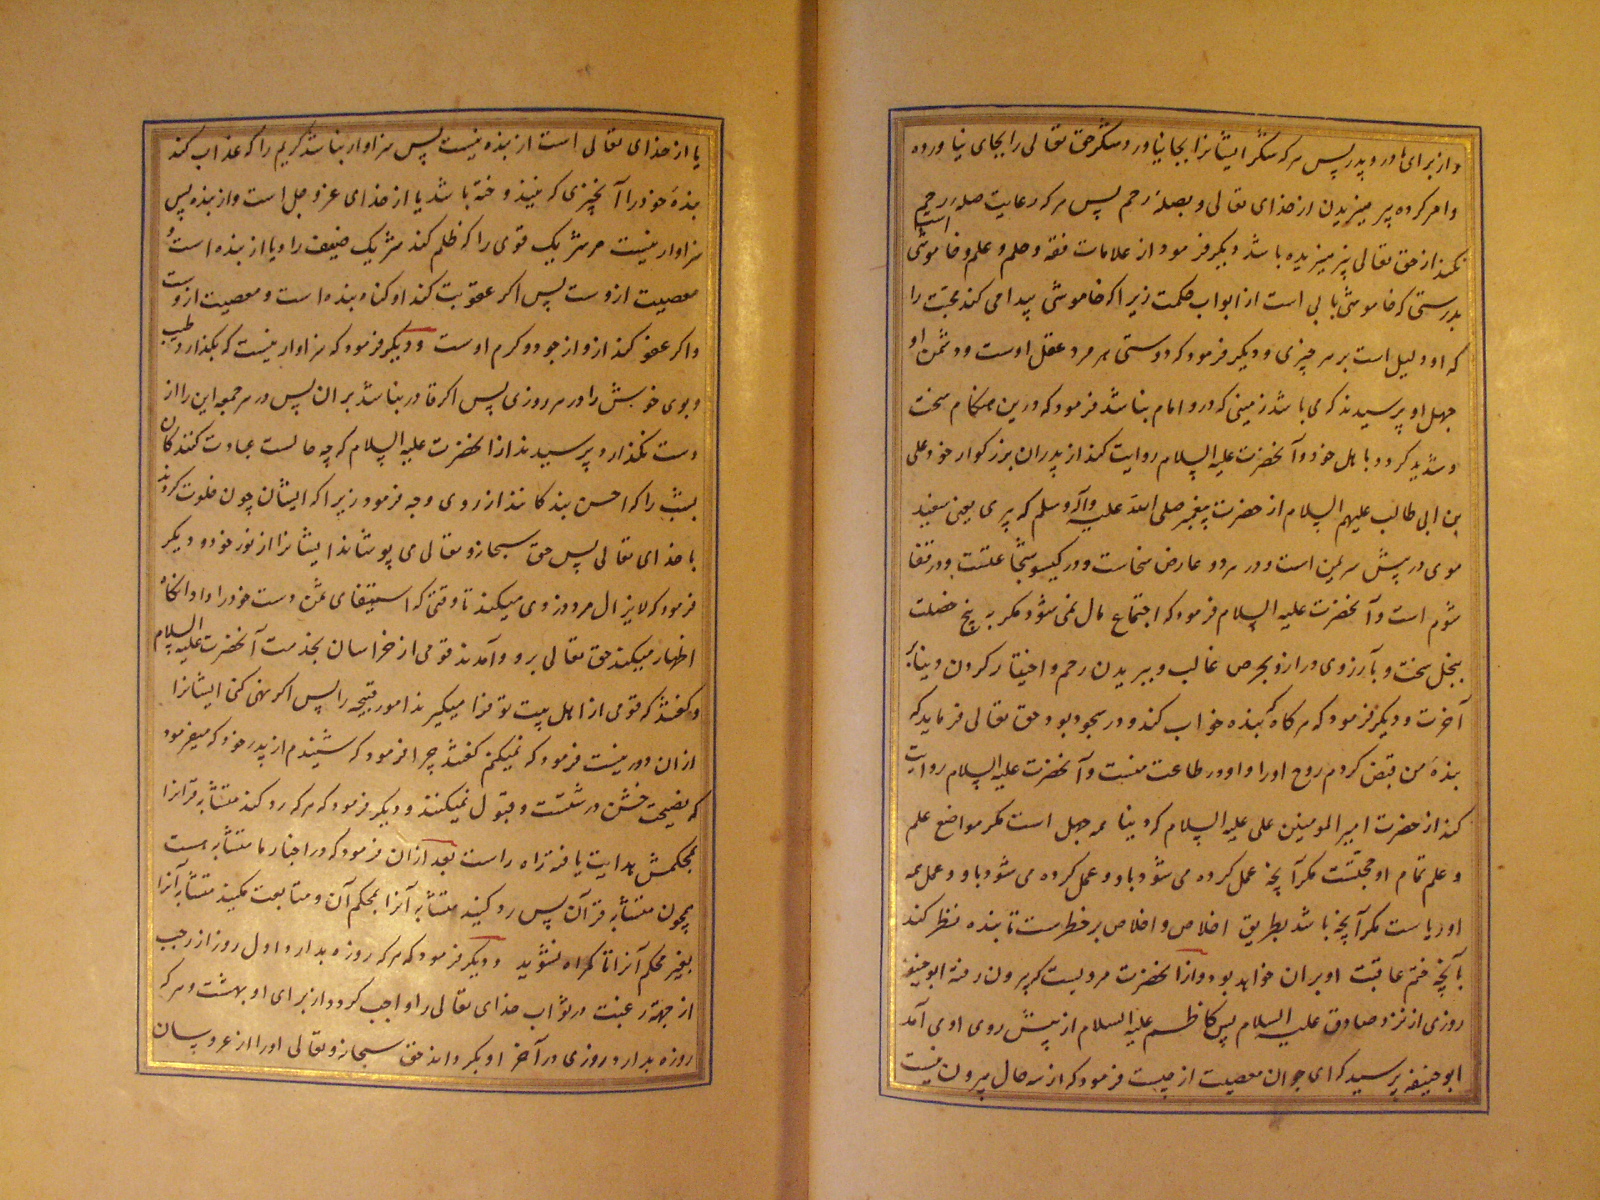 و از برای مادر و پدر پس هر که شکر ایشانرا بجا نیاورد و شکر حق تعالی را بجای نیاورده
و امر کرده بپرهیزیدن از خدای تعالی و بصلهٔ رحم پس هر که رعایت صله رحم
نکند از حق تعالی پرهیزیده باشد دیگر فرمود از علامات فقه و حلم و علم و خاموشی است
بدرستی که خاموشی بابی است از ابواب حکمت زیرا که خاموشی پیدا می کند محبت را
که او دلیل است بر هر چیزی و دیگر فرمود که دوستی هر مرد عقل اوست و دشمن او
جهل او پرسیدند که می باشد زمینی که درو امام نباشد فرمود که درین هنکام سخت
و شدید کردد با اهل خود و آنحضرت علیه السلام روایت کند از پدران بزرکوار خود علی
بن ابی طالب علیهم السلام از حضرت پیغمبر صلی الله علیه وآله وسلم که پری یعنی سفید
موی در پیش سر یمن است و در هر دو عارض سخاست و در کیسو شجاعتست و در قفا
شوم است و آنحضرت علیه السلام فرمود که اجتماع مال نمی شود مکر به پنج خصلت
ببخل سخت و بآرزوی دراز و بحرص غالب و ببریدن رحم و اختیار کردن دنیا بر
آخرت و دیگر فرمود که هر کاه که بنده خواب کند و در سجود بود حق تعالی فرماید که
بندهٔ من قبض کردم روح او را و او در طاعت منست و آنحضرت علیه السلام روایت
کند از حضرت امیرالمومنین علی علیه السلام که دنیا همه جهل است مکر مواضع علم
و علم تمام او حجتست مکر آنچه عمل کرده می شود باو و عمل کرده می شود باو و عمل همه
او ریاست مکر آنچه باشد بطریق اخلاص و اخلاص بر خطرست تا بنده نظر کند
بآنچه ختم عاقبت او بران خواهد بود و از آنحضرت مرویست که بیرون رفت ابو حنیفه
روزی از نزد صادق علیه السلام پس کاظم علیه السلام از پیش روی او می آمد
ابو حنیفه پرسید که ای جوان معصیت از چیست فرمود که از سه حال بیرون نیست
یا از خدای تعالی است از بنده نیست پس سزاوار نباشد کریم را که عذاب کند
بندهٔ خود را آنچیزی که نیندوخته باشد یا از خدای عز و جل است و از بنده پس
سزاوار نیست مر شریک قوی را که ظلم کند شریک ضعیف را و یا از بنده است و
معصیت ازوست پس اکر عقوبت کند او کناه بنده است و معصیت ازوست
و اکر عفو کند ازو از جود و کرم اوست و دیگر فرمود که سزاوار نیست که بکذارد طیب
و بوی خوش را در هر روزی پس اکر قادر نباشد بران پس در هر جمعه این را از
دست نکذارد و پرسیدند از آنحضرت علیه السلام که چه حالست عبادت کنندکان
بشب را که احسن بندکانند از روی وجه فرمود زیرا که ایشان چون خلوت کردند
با خدای تعالی پس حق سبحانه و تعالی می پوشاند ایشانرا از نور خود و دیگر
فرمود که لایزال مرد دزدی میکند تا وقتی که استیفای ثمن دست خود را و انکاه
اظهار میکند حق تعالی برو و آمدند قومی از خراسان بخدمت آنحضرت علیه السلام
و کفتند که قومی از اهل بیت تو فرا میکیرند امور قبیحه را پس اکر نهی کنی ایشانرا
ازان دور نیست فرمود که نمیکنم کفتند چرا فرمود که شنیدم از پدر خود که میفرمود
که نصیحت خشن درشتست و قبول نمیکنند و دیگر فرمود که هر که رد کند متشابه قرانرا
بمحکمش هدایت یافته راه راست بعد ازان فرمود که در اخبار ما متشابه هست
همچون متشابه قرآن پس رد کنید متشابه آنرا بمحکم آن و متابعت مکنید متشابه آنرا
بغیر محکم آنرا تا کمراه نشوید و دیگر فرمود که هر که روزه بدارد اول روز از رجب
از جهة رغبت در ثواب خدای تعالی را واجب کردد از برای او بهشت و هر که
روزه بدارد روزی در آخر او بکرداند حق سبحانه و تعالی او را از عروسان